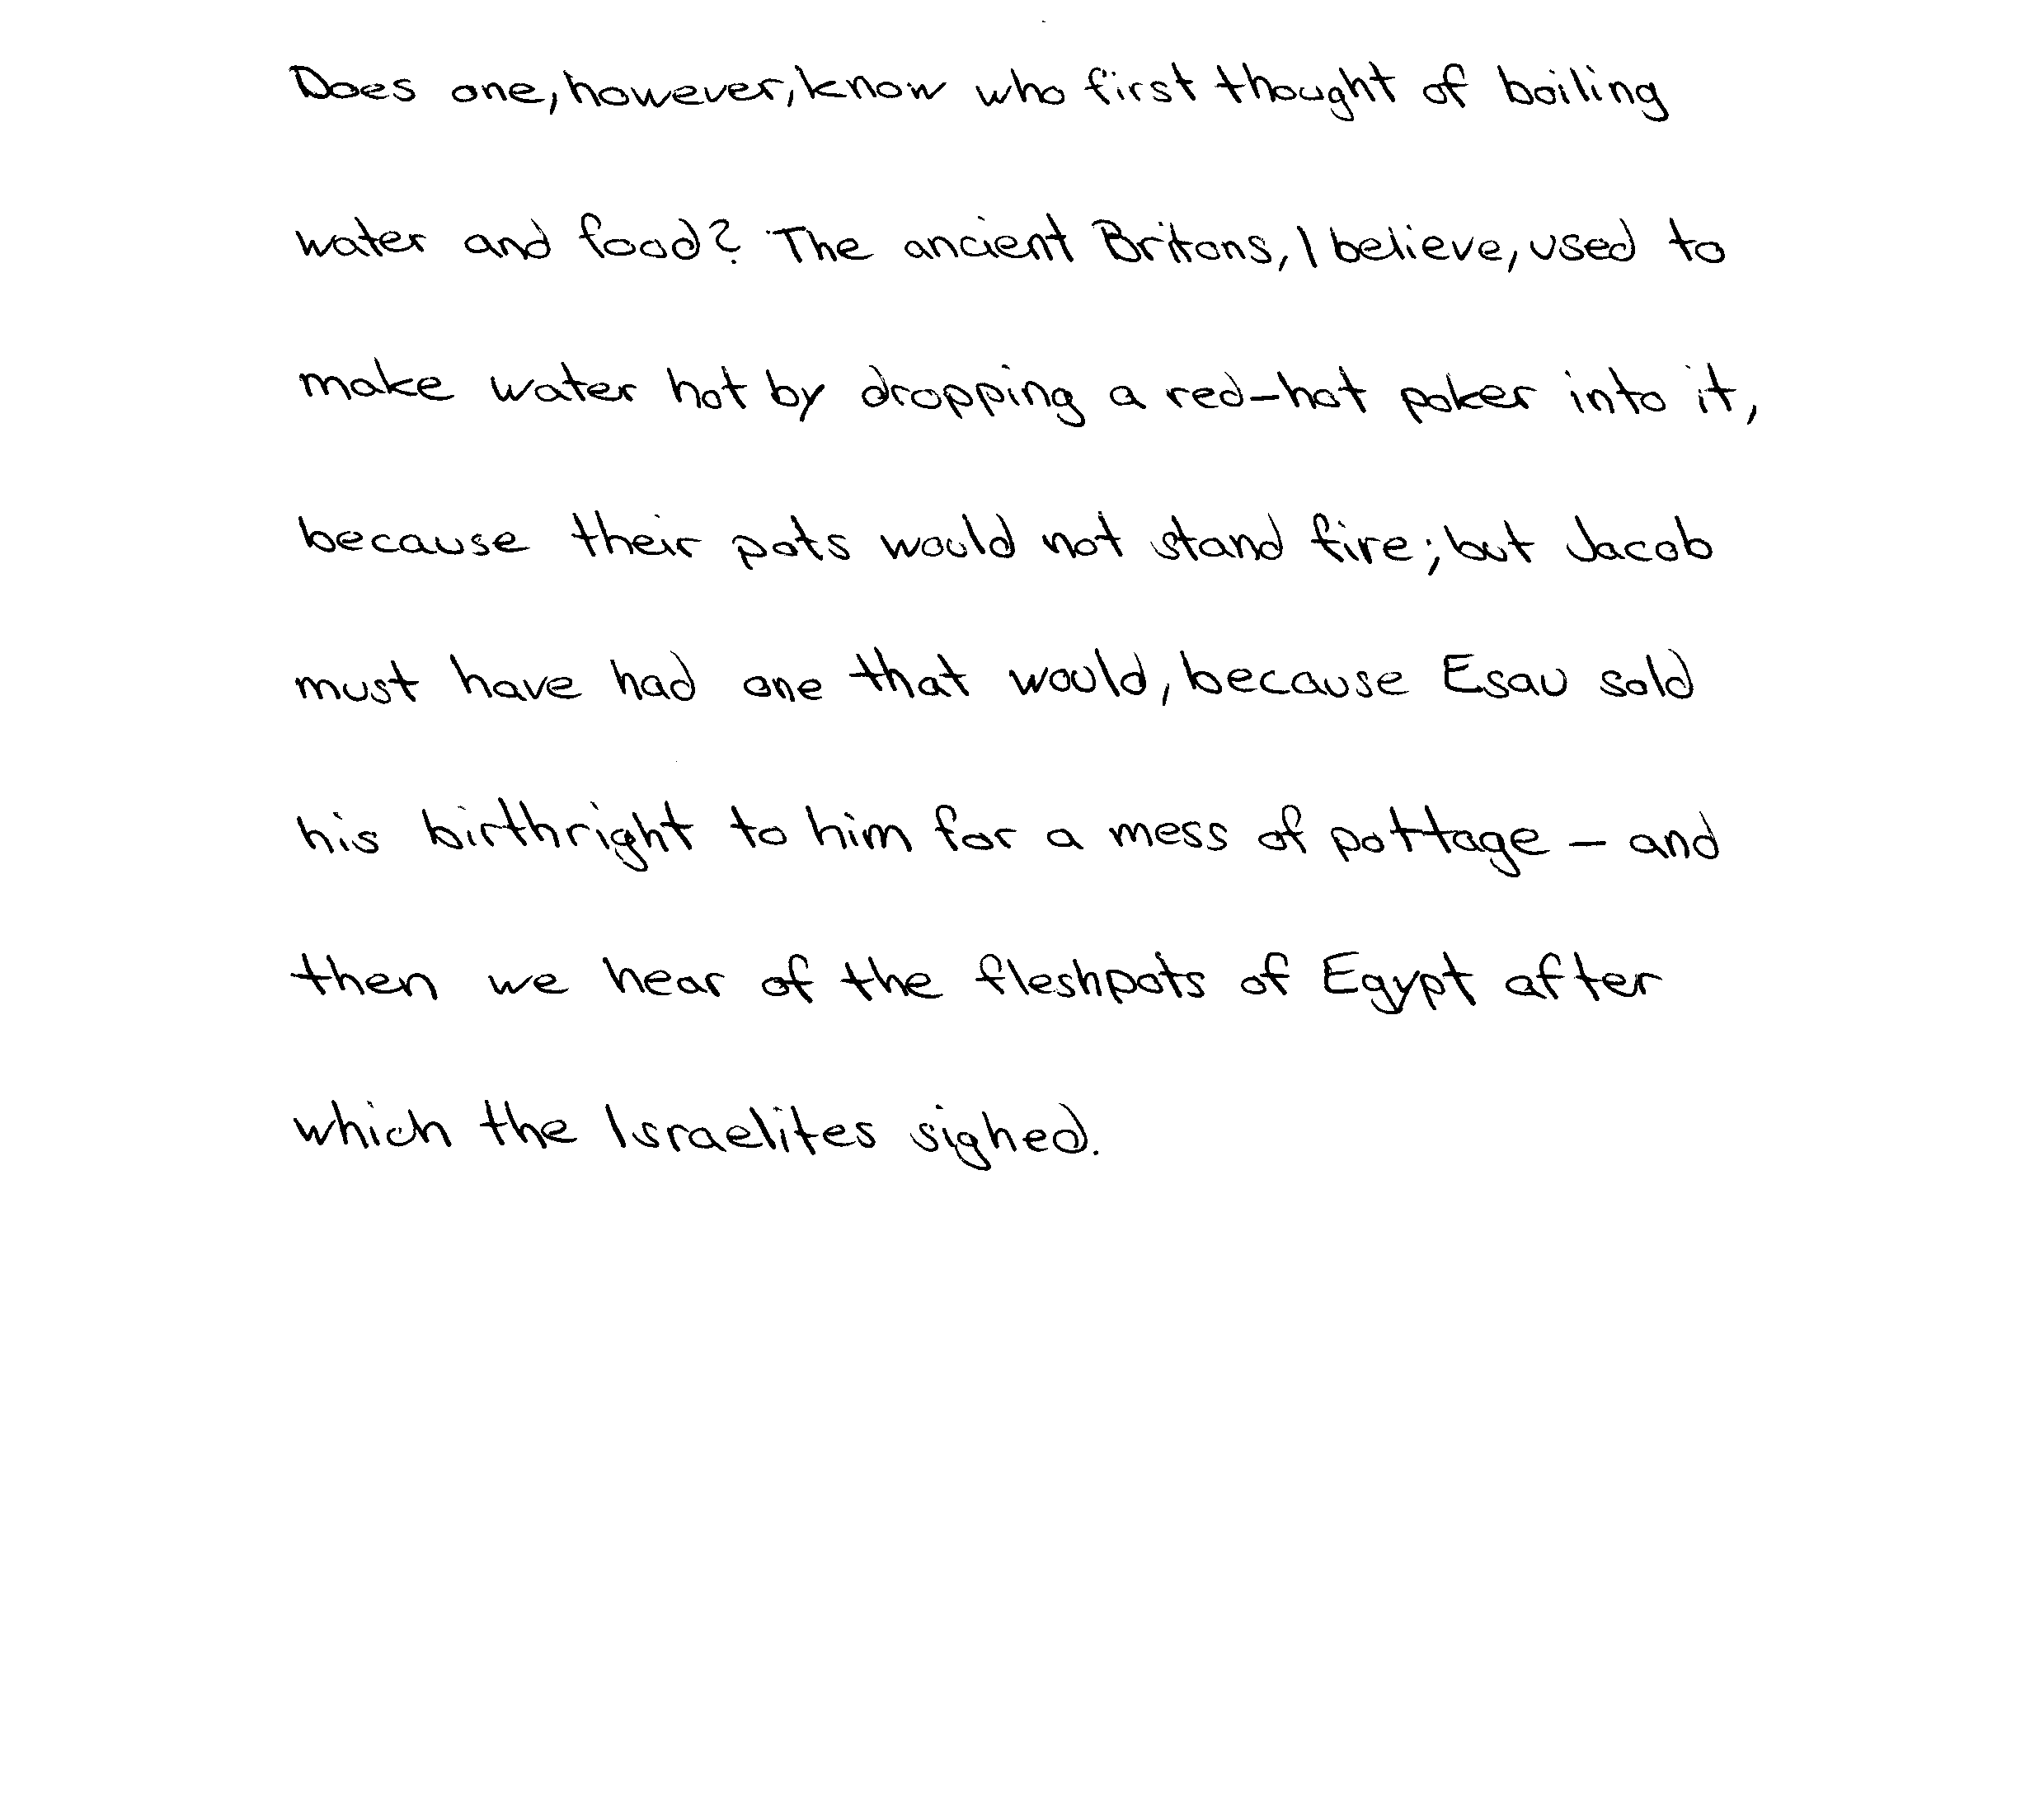 Does one, however, know who first thought of boiling
water and food? The ancient Britons, I believe, used to
make water hot by dropping a red-hot poker into it,
because their pots would not stand fire; but Jacob
must have had one that would, because Esau sold
his birthright to him for a mess of pottage - and
then we hear of the fleshpots of Egypt after
which the Israelites sighed.